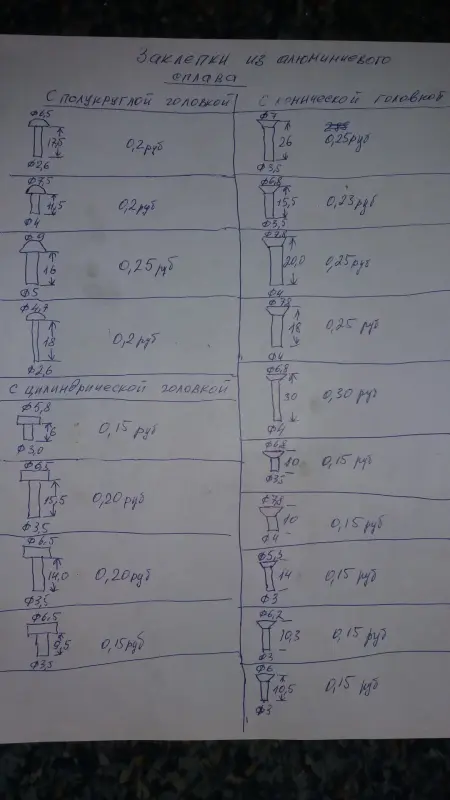 Заклепки из алюминиевого
сплава
с полукруглой головкой
ф6,5
17,5
0,2 руб
ф2,6
ф7,5
11,5
0,2 руб
ф4
ф9
16
0,25 руб
ф5
ф4,7
18
0,2 руб
ф2,6
с цилиндрической головкой
ф5,8
6
0,15 руб
ф3,0
ф6,5
15,5
0,20 руб
ф3,5
ф6,5
14,0
0,20 руб
ф3,5
ф6,5
9,5
0,15 руб
ф3,5
с конической головкой
ф7
26
0,25 руб
ф3,5
ф6,8
15,5
0,23 руб
ф3,5
ф7,8
20,0
0,25 руб
ф4
ф7,8
18
0,25 руб
ф4
ф6,8
30
0,30 руб
ф4
ф6,8
10
0,15 руб
ф3,5
ф7,8
10
0,15 руб
ф4
14
0,15 руб
ф3
ф6,2
10,3
0,15 руб
ф3
ф6
10,5
0,15 руб
ф3